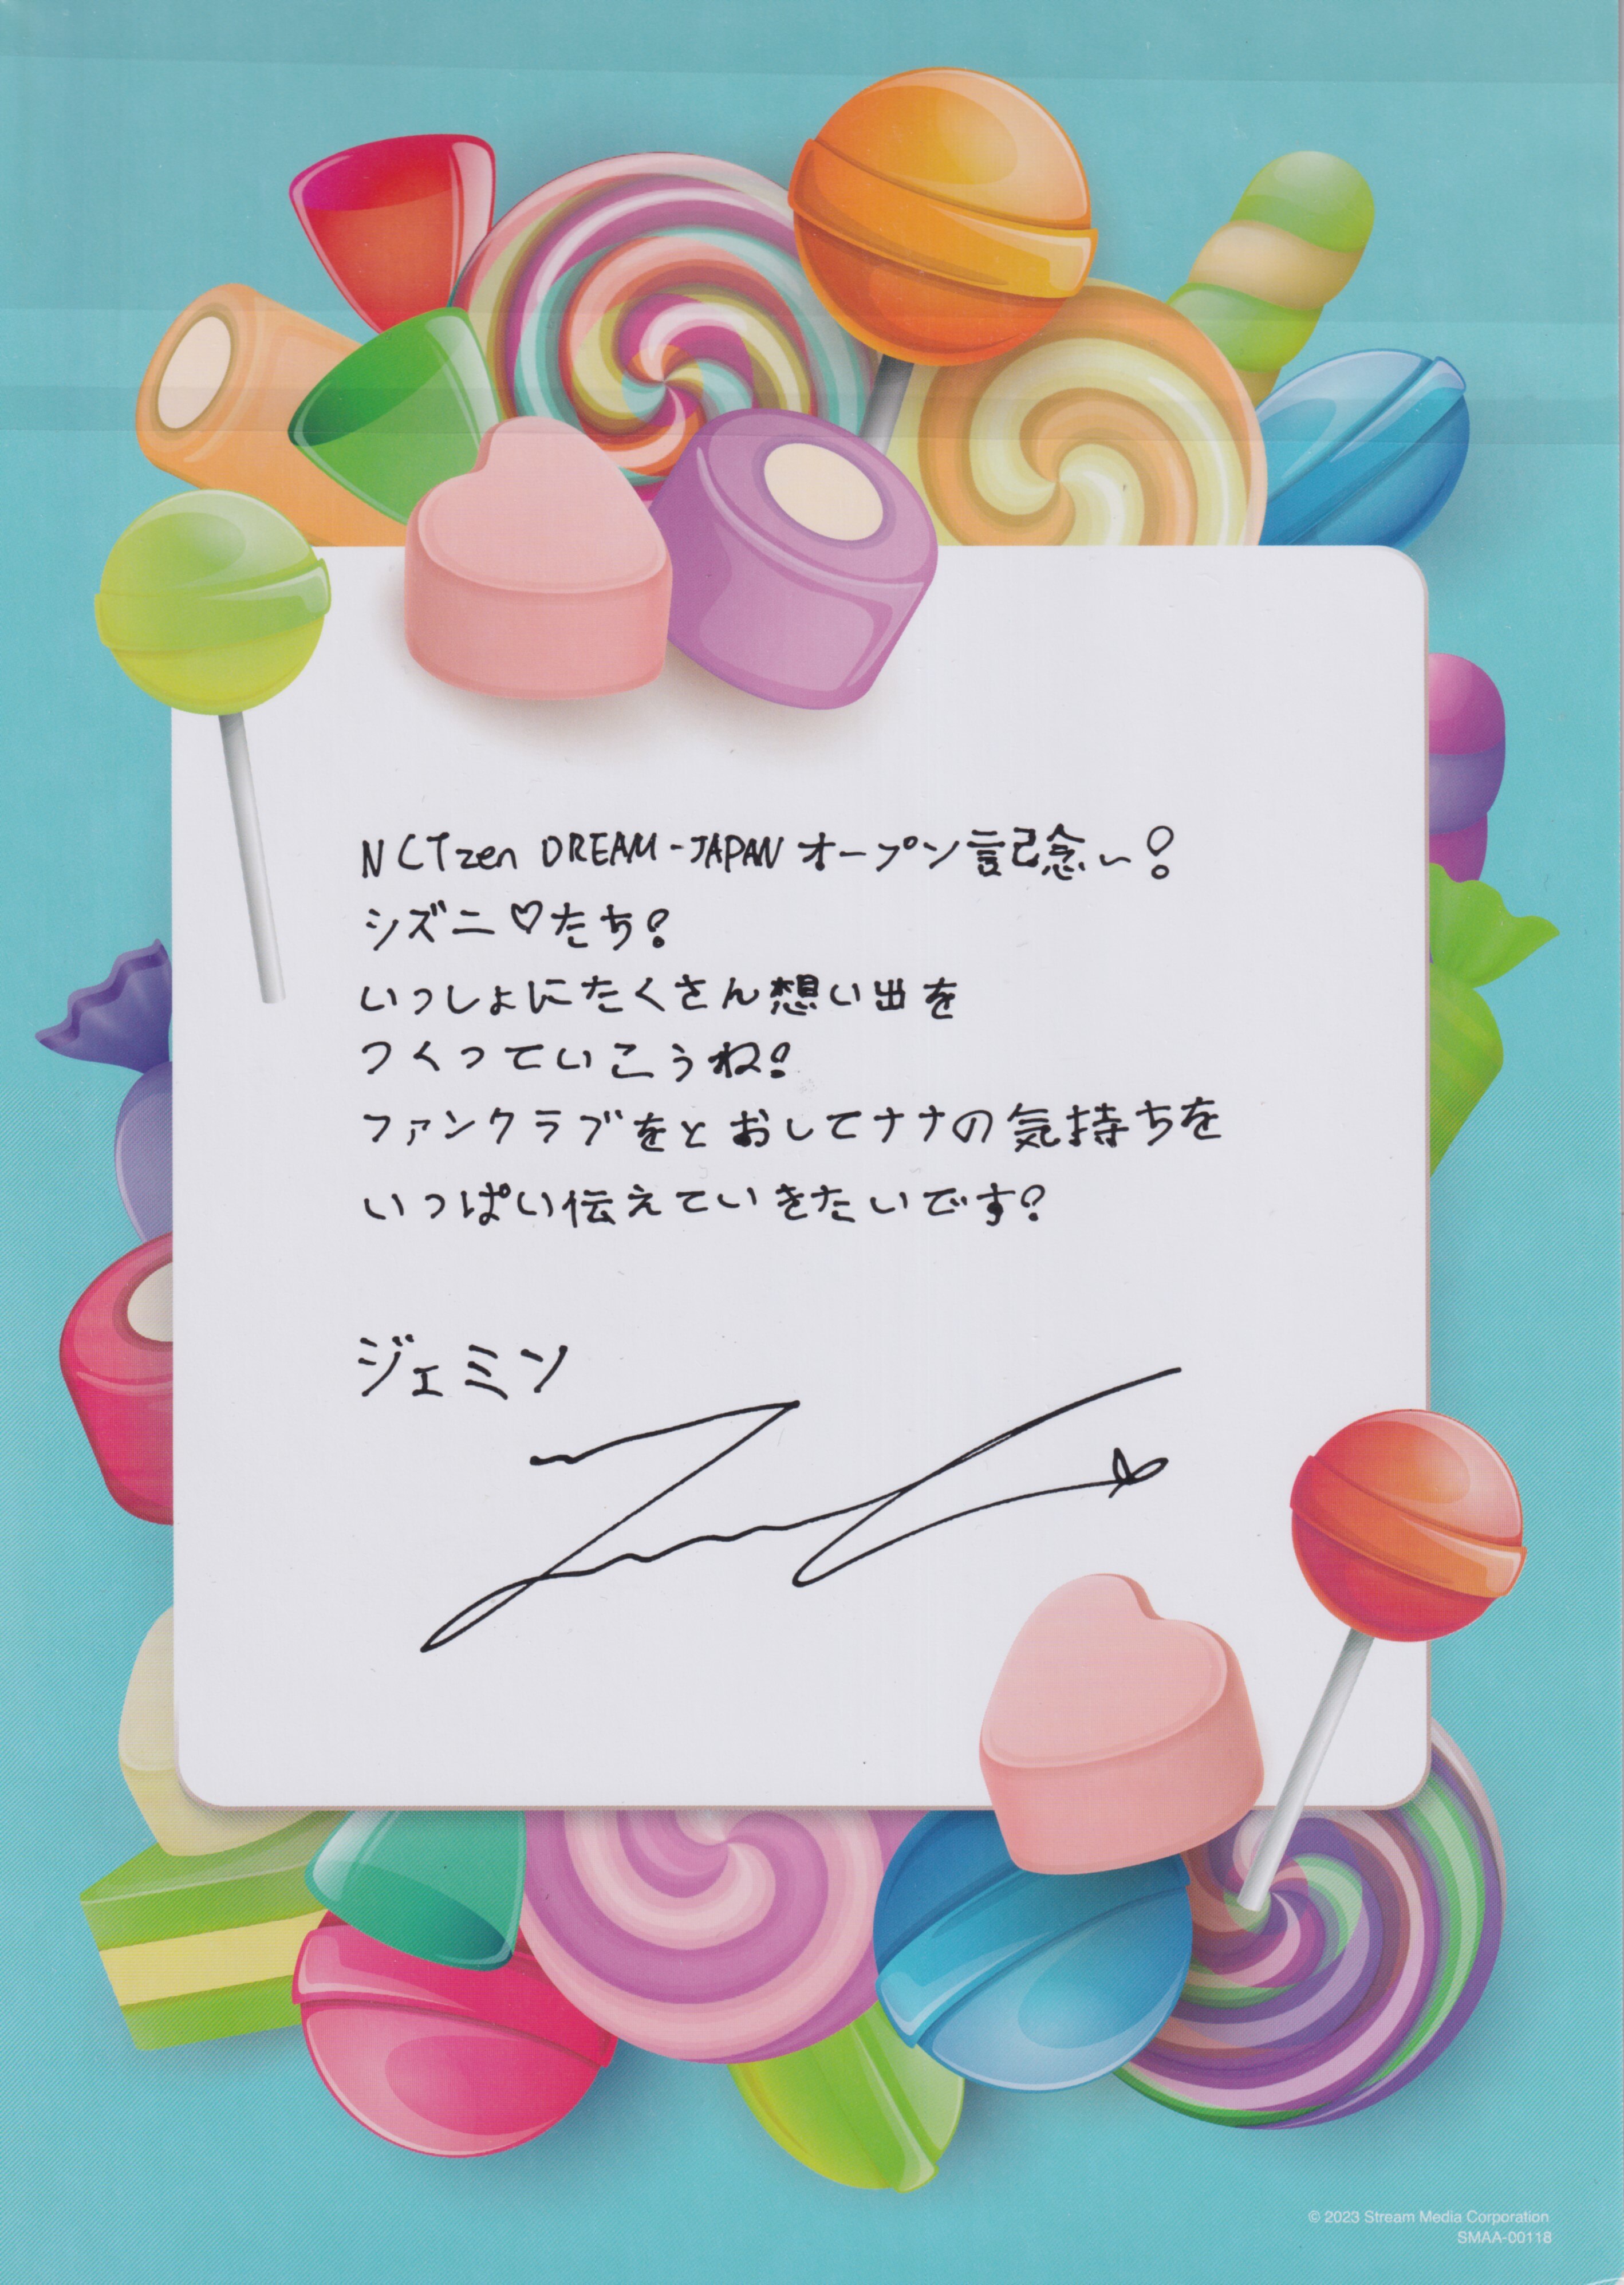 NCTzen DREAM-JAPAN オープン記念〜!
シズニ♡たち!
いっしょにたくさん想い出を
つくっていこうね!
ファンクラブをとおしてナナの気持ちを
いっぱい伝えていきたいです!
ジェミン
© 2023 Stream Media Corporation
SMAA-00118